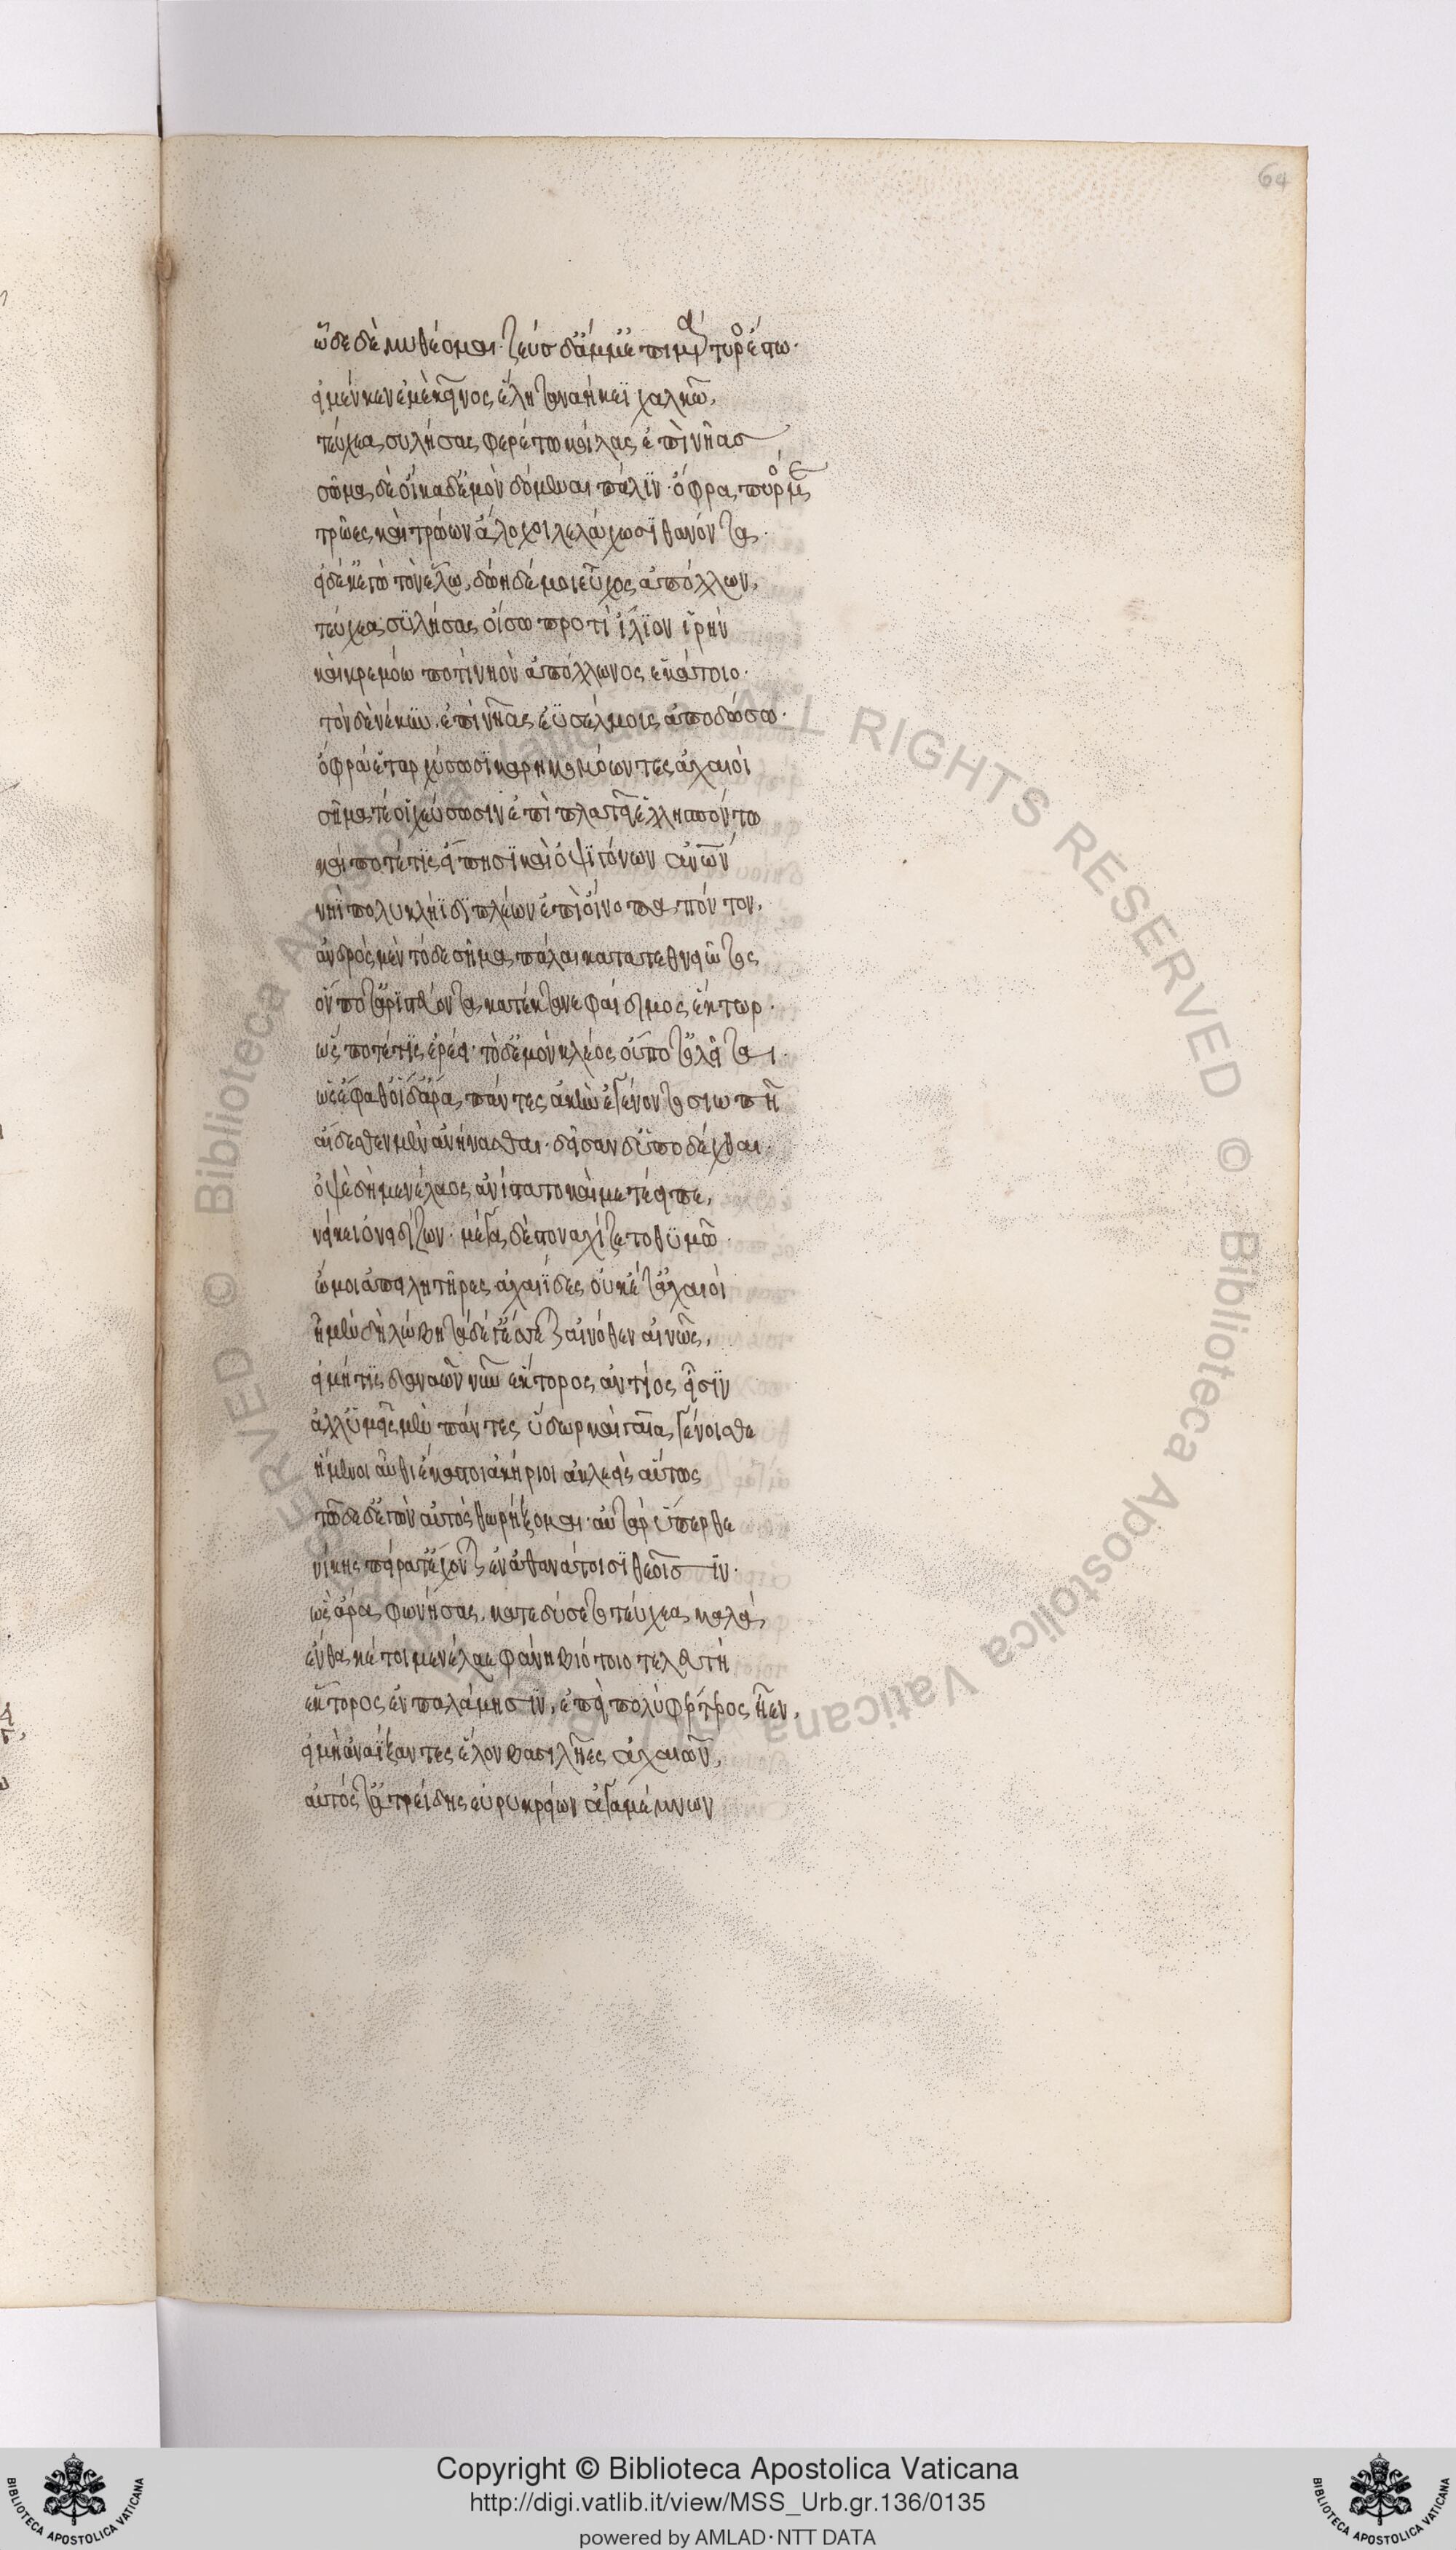 64
ὧδε δὲ μυθέομαι· ζεὺς δ' ἄμμ' ἐπιμάρτυρος ἔστω·
εἰ μέν κεν ἐμὲ κεῖνος ἕλη ταναήκεϊ χαλκῶ,
τεύχεα συλήσας φερέτω κοίλας ἐπὶ νῆας
σῶμα δὲ οἴκαδ' ἐμὸν δόμεναι πάλιν· ὄφρα πυρός με
τρῶες καὶ τρώων ἄλοχοι λελάχωσι θανόντα·
εἰ δέ κ' ἐγὼ τὸν ἕλω, δώη δέ μοι εὖχος ἀπόλλων,
τεύχεα συλήσας οἴσω προτὶ ἴλιον ἱρήν
καὶ κρεμόω ποτὶ νηὸν ἀπόλλωνος ἑκάτοιο·
τὸν δὲ νέκυν, ἐπὶ νῆας ἐϋσέλμοις ἀποδώσω·
ὄφρα ἑ ταρχύσωσι καρηκομόωντες ἀχαιοὶ
σῆμα τέ οἱ χεύσωσιν ἐπὶ πλατεῖ ἑλλησπόντω
καί ποτέ τις εἴπησι καὶ ὀψιγόνων ἀνῶν
νηῒ πολυκλήϊδι πλέων ἐπὶ οἴνοπα πόντον,
ἀνδρὸς μὲν τόδε σῆμα πάλαι κατατεθνειῶτος
ὅν ποτ' ἀριστεύοντα κατέκτανε φαίδιμος ἕκτωρ·
ὥς ποτέ τις ἐρέει· τὸ δ' ἐμὸν κλέος οὔποτ' ὀλεῖται·
ὣς ἔφαθ' οἱ δ' ἄρα πάντες ἀκὴν ἐγένοντο σιωπῆ
αἴδεσθεν μὲν ἀνήνασθαι· δεῖσαν δ' ὑποδέχθαι·
ὀψὲ δὴ μενέλαος ἀνίστατο καὶ μετέειπε,
νείκει ὀνειδίζων· μέγα δὲ στοναχίζετο θυμῶ·
ὤ μοι ἀπειλητῆρες ἀχαιΐδες οὐκέτ' ἀχαιοὶ
ἦ μὲν δὴ λώβη τάδέ γ' ἔσεται αἰνόθεν αἰνῶς,
εἰ μή τις δαναῶν νῦν ἕκτορος ἀντίος εἶσιν
ἀλλ' ὑμεῖς μὲν πάντες ὕδωρ καὶ γαῖα γένοισθε
ἥμενοι αὖθι ἕκαστοι ἀκήριοι ἀκλεεὲς αὔτως
τῶδε δ' ἐγὼν αὐτὸς θωρήξομαι· αὐτὰρ ὕπερθε
νίκης πείρατ' ἔχονται ἐν ἀθανάτοισι θεοῖσιν·
ὣς ἄρα φωνήσας, κατεδύσετο τεύχεα καλά,
ἔνθα κέ τοι μενέλαε φάνη βιότοιο τελευτὴ
ἕκτορος ἐν παλάμησιν, ἐπεὶ πολὺ φέρτερος ἦεν,
εἰ μὴ ἀναΐξαντες ἕλον βασιλῆες ἀχαιῶν,
αὐτός τ' ἀτρείδης εὐρυκρείων ἀγαμέμνων
Copyright © Biblioteca Apostolica Vaticana
http://digi.vatlib.it/view/MSS_Urb.gr.136/0135
powered by AMLAD·NTT DATA